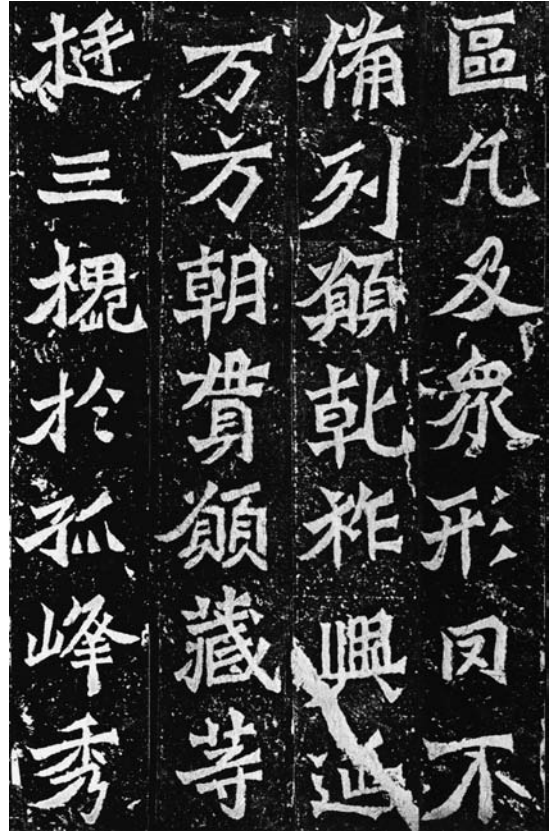 區凡及衆形罔不
備列願乾祚興延
万方朝貫願藏等
挺三槐於孤峰秀